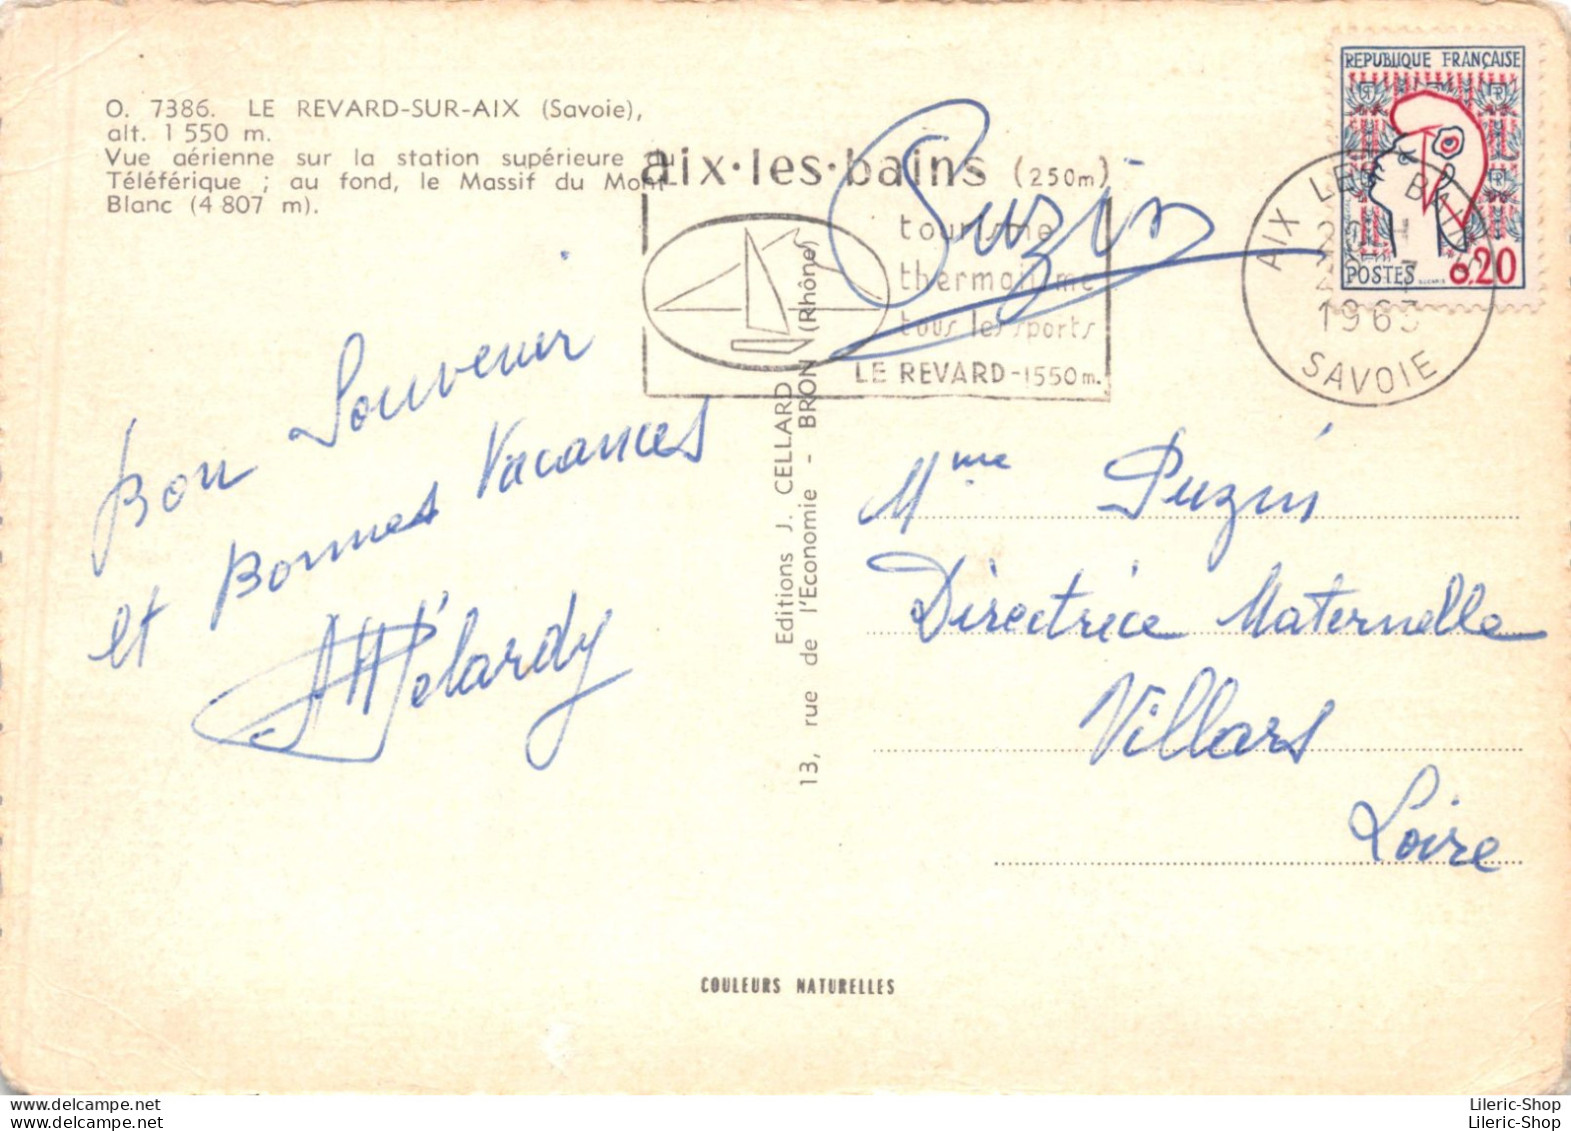 O. 7386. LE REVARD-SUR-AIX (Savoie),
alt. 1 550 m.
Vue aérienne sur la station supérieure du
Téléférique ; au fond, le Massif du Mont
Blanc (4 807 m).
Bon Souvenir
et Bonnes Vacances
Pélardy
aix·les·bains (250m)
tourisme
thermalisme
tous les sports
LE REVARD-1550m.
Puzin
REPUBLIQUE FRANÇAISE
POSTES 0,20
AIX LES BAINS
1963
SAVOIE
Editions J. CELLARD
13, rue de l'Economie - BRON (Rhône)
Mme Puzin
Directrice Maternelle
Villars
Loire
COULEURS NATURELLES
Lileric-Shop
delcampe.net
Lileric-Shop
delcampe.net